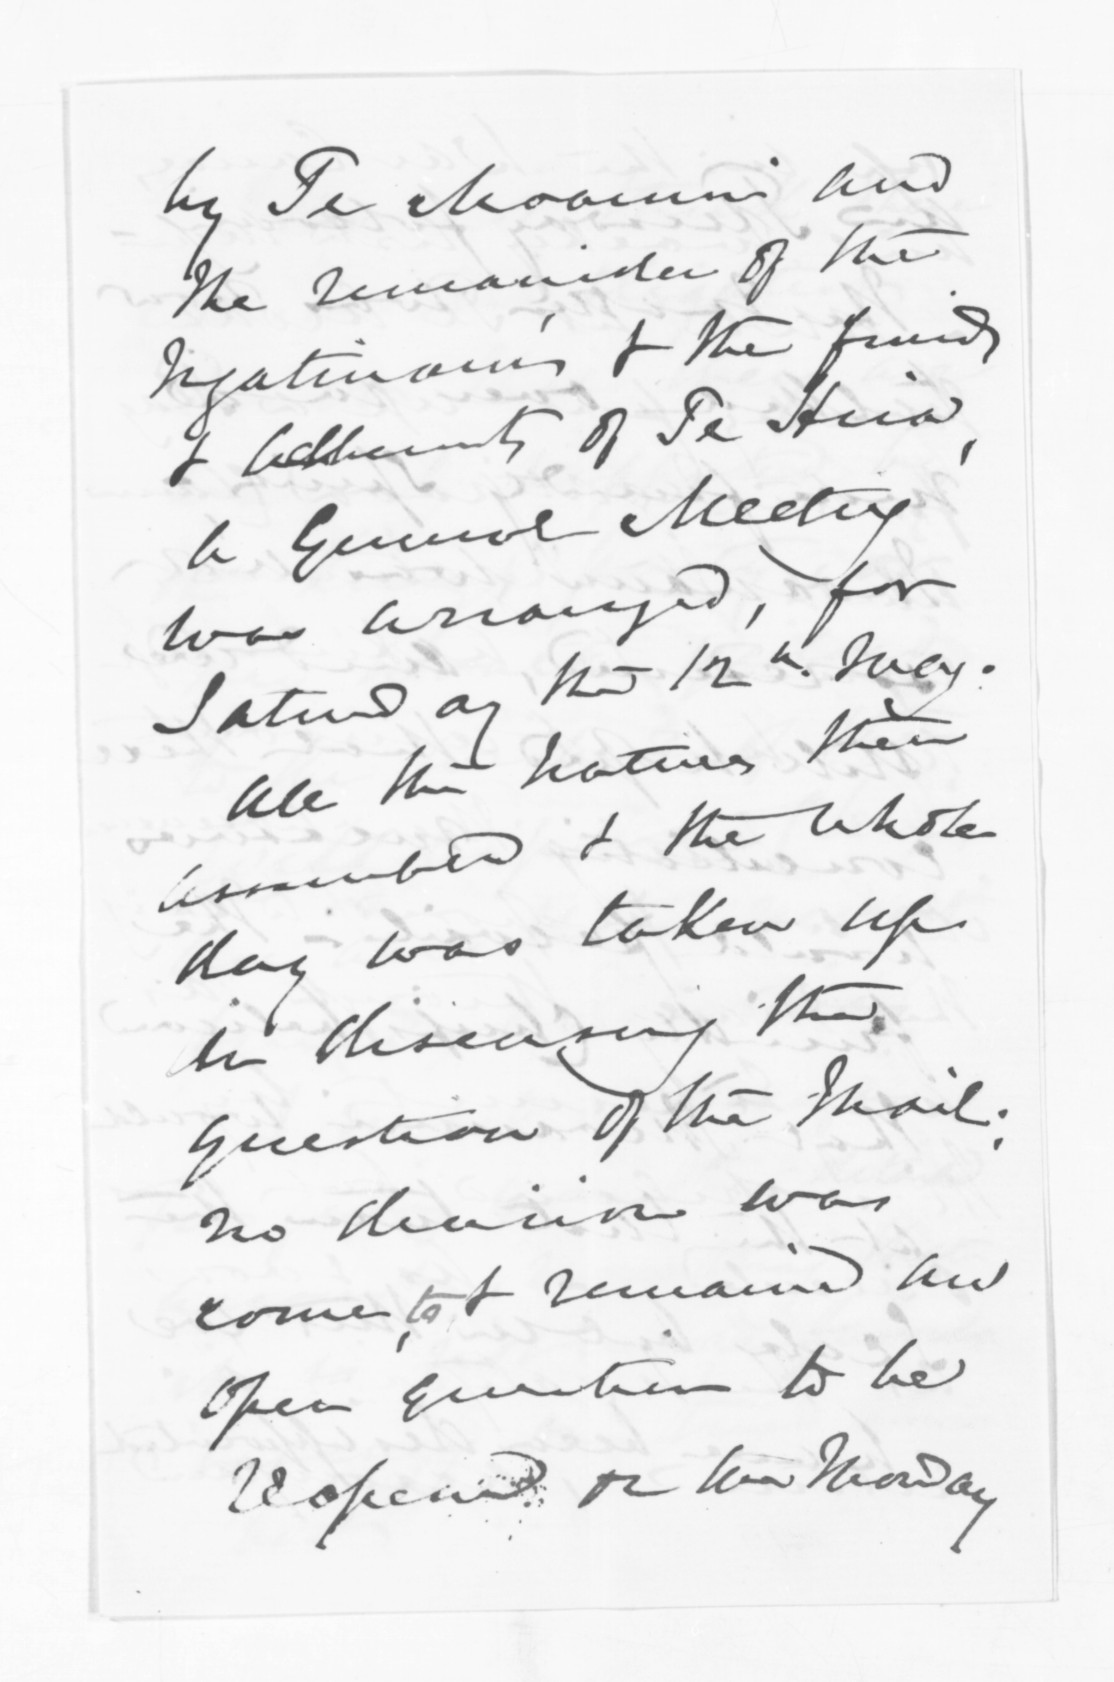 by Te Moanui and
the remainder of the
Ngatimaru's & the friends
& adherents of Te Hira,
a General Meeting
was arranged, for
Saturday the 12th. May.
All the natives then
assembled & the whole
day was taken up
in discussing the
question of the Mail;
no decision was
come to & remained an
open question to be
reopened on the Monday